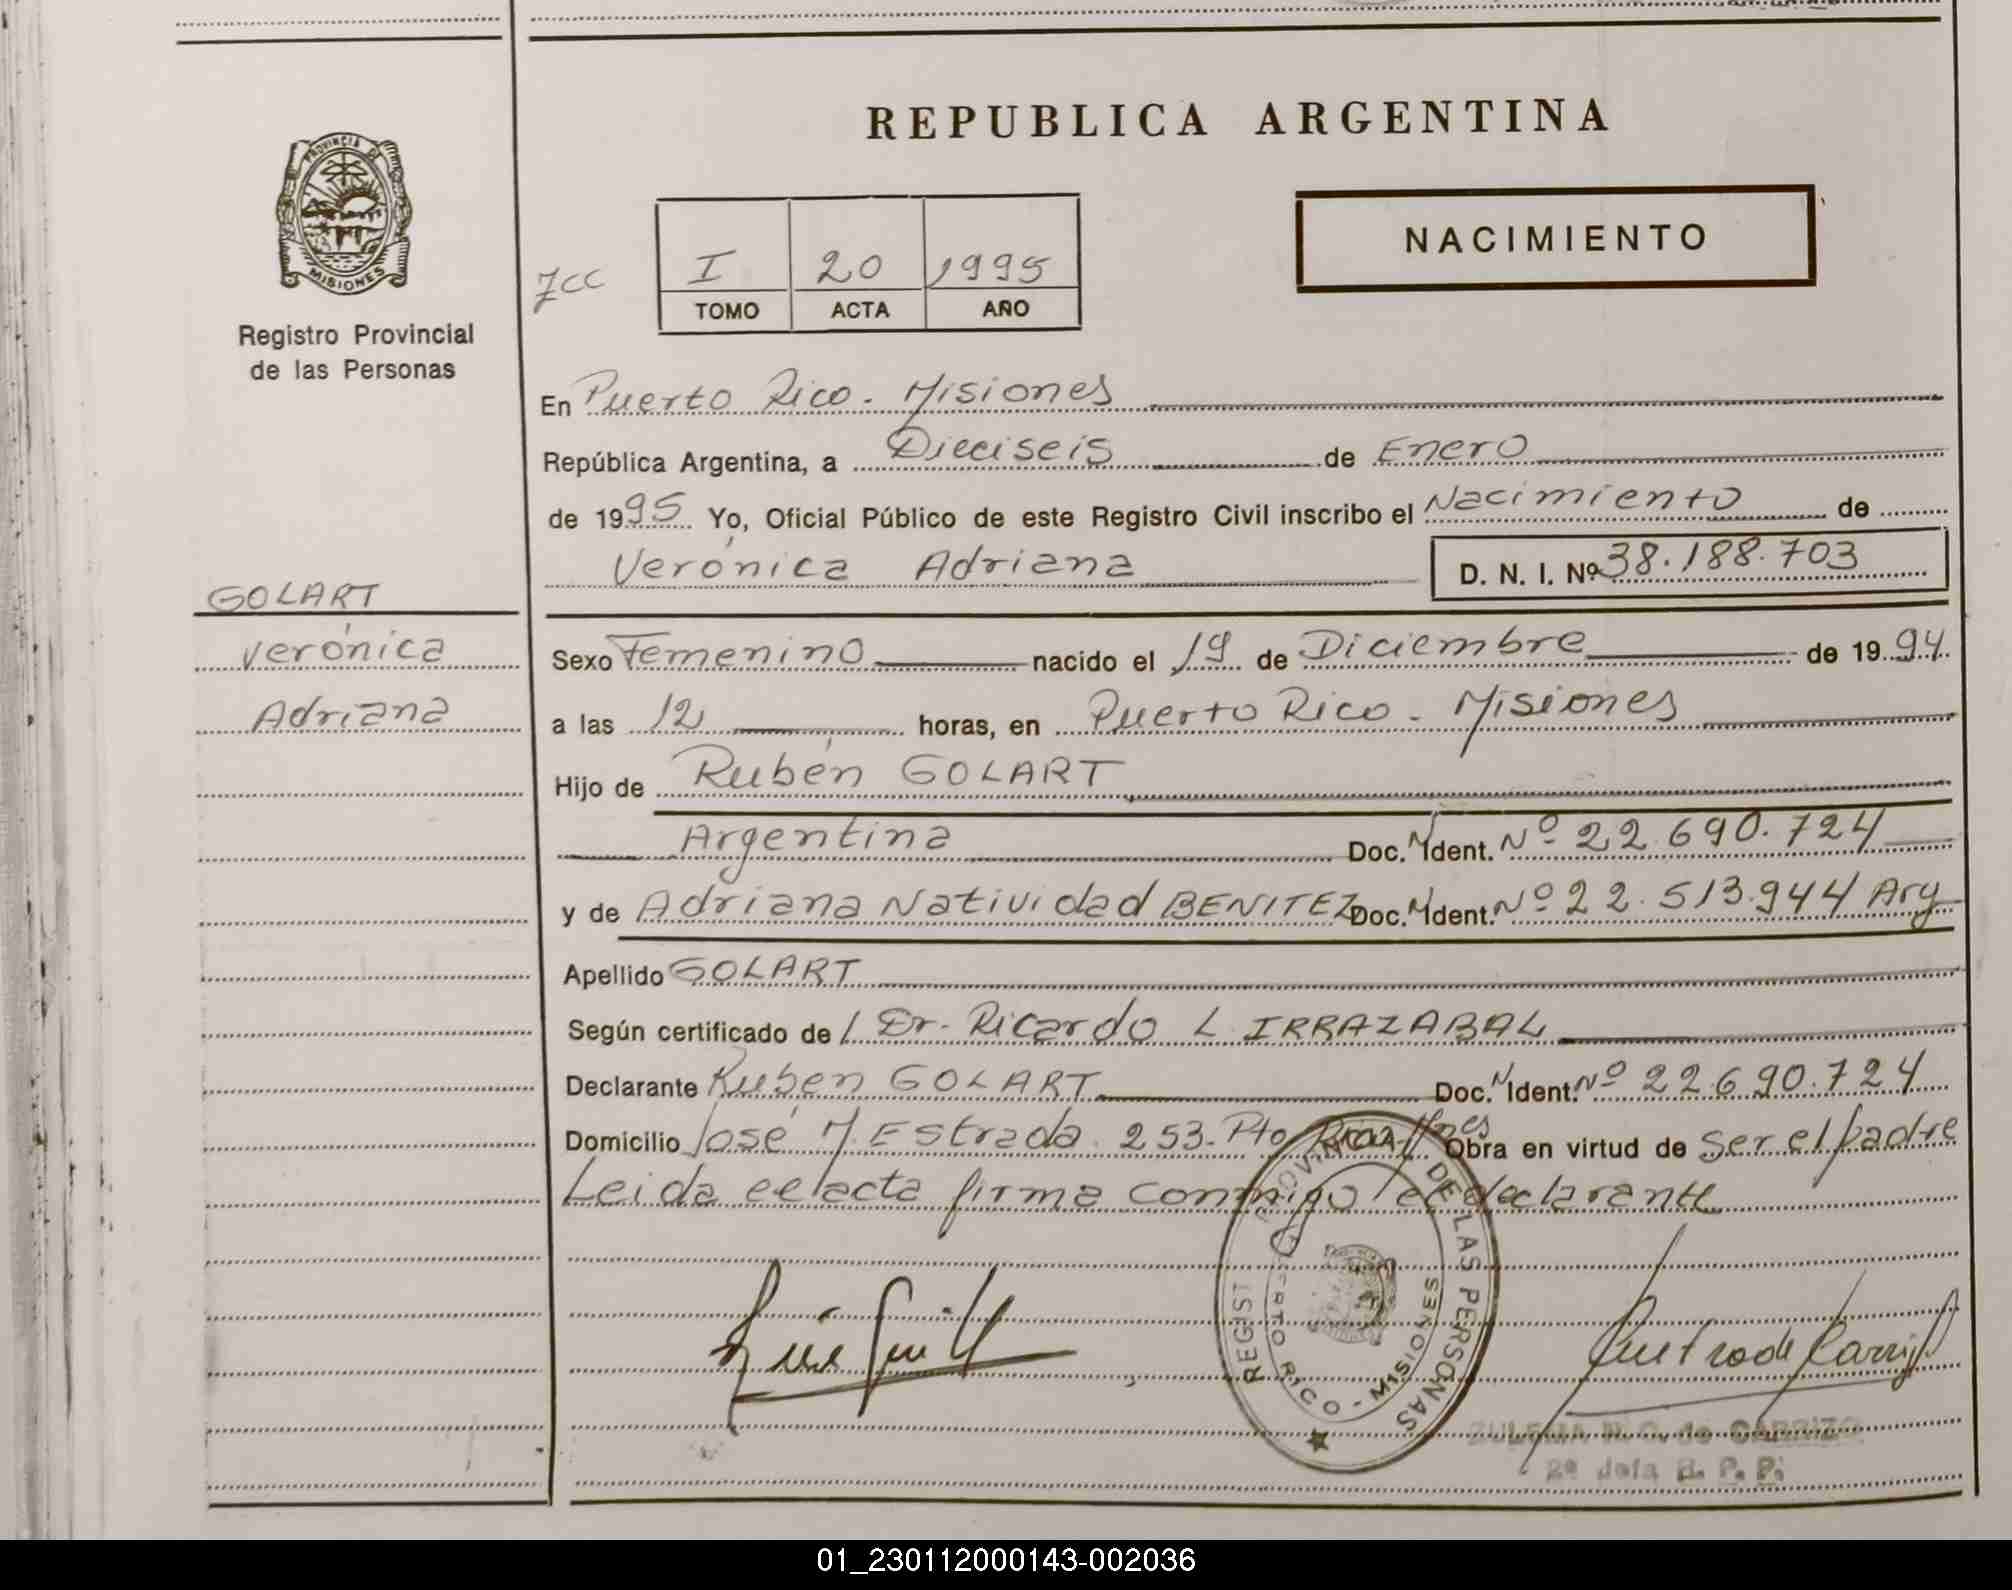 REPUBLICA ARGENTINA
PROVINCIA DE
MISIONES
Registro Provincial
de las Personas
NACIMIENTO
7cc
I 20 1995
TOMO ACTA AÑO
En Puerto Rico - Misiones
República Argentina, a Dieciseis de Enero
de 1995 Yo, Oficial Público de este Registro Civil inscribo el Nacimiento de
Verónica Adriana D. N. I. Nº 38.188.703
GOLART
Verónica
Adriana
Sexo Femenino nacido el 19 de Diciembre de 1994
a las 12 horas, en Puerto Rico - Misiones
Hijo de Rubén GOLART
Argentina Doc. N Ident. Nº 22.690.724
y de Adriana Natividad BENITEZ Doc. N Ident. Nº 22.513.944 Arg
Apellido GOLART
Según certificado de l Dr. Ricardo L. IRRAZABAL
Declarante Rubén GOLART Doc. N Ident. Nº 22.690.724
Domicilio José M. Estrada 253- Pto Rico- Mnes Obra en virtud de Ser el padre
Leida el acta firma conmigo el declarante
REGIST PROVINCIAL DE LAS PERSONAS
PUERTO RICO - MISIONES
ZULEMA N. C. de CARRIZO
2ª Jefa R. P. P.
01_230112000143-002036